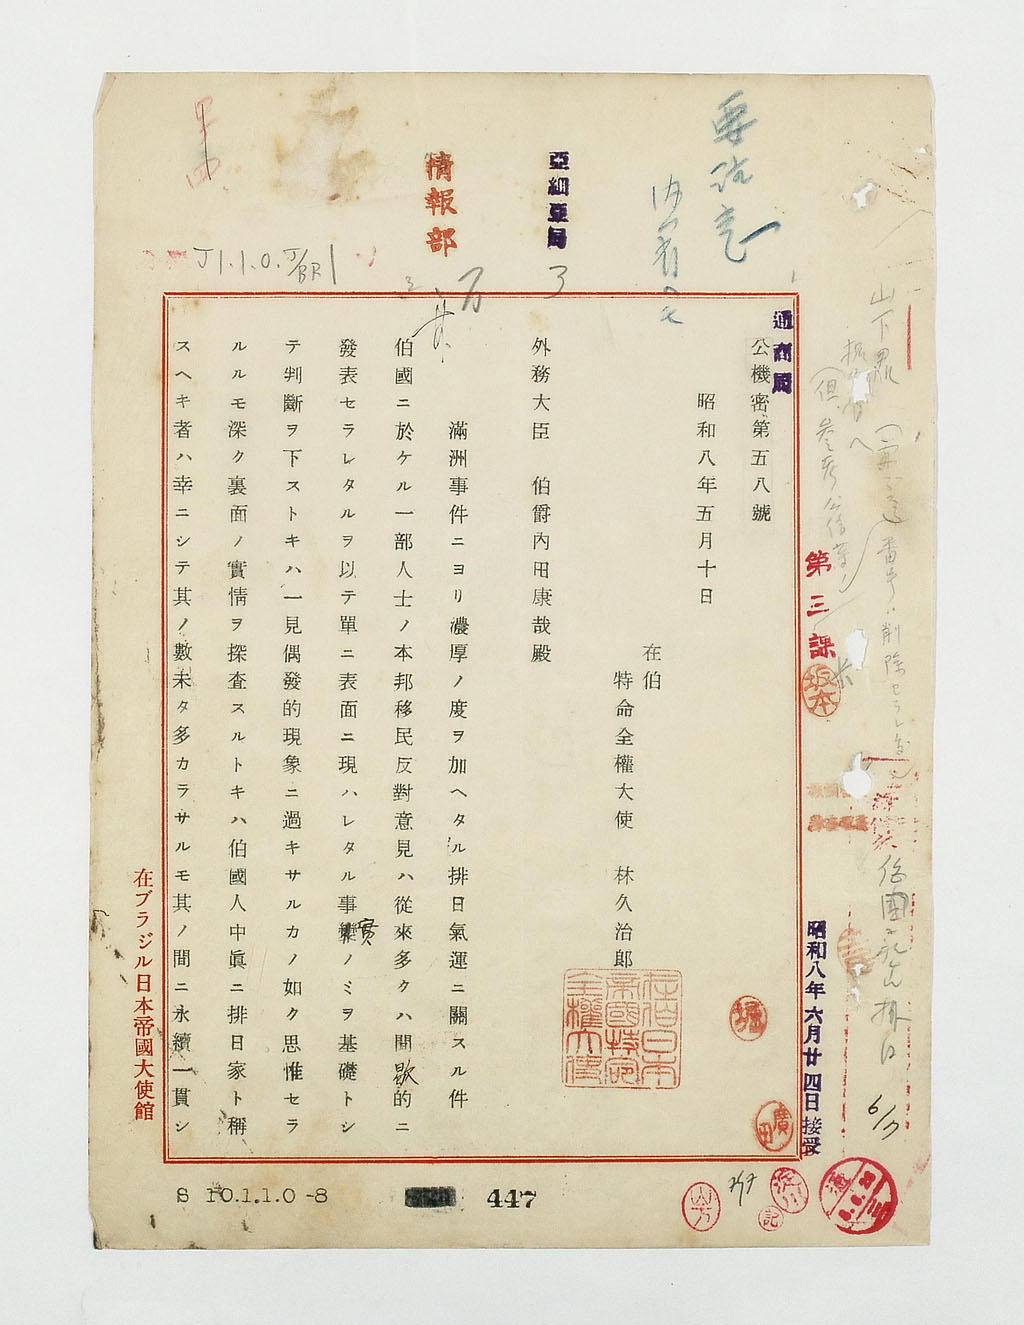 亞細亞局
情報部
通商局
公機密第五八號
昭和八年五月十日
在伯
特命全權大使　林久治郎
外務大臣　伯爵內田康哉殿
滿洲事件ニヨリ濃厚ノ度ヲ加ヘタル排日氣運ニ關スル件
伯國ニ於ケル一部人士ノ本邦移民反對意見ハ從來多クハ間歇的ニ
發表セラレタルヲ以テ單ニ表面ニ現ハレタル事實ノミヲ基礎トシ
テ判斷ヲ下ストキハ一見偶發的現象ニ過キサルカノ如ク思惟セラ
ルルモ深ク裏面ノ實情ヲ探査スルトキハ伯國人中眞ニ排日家ト稱
スヘキ者ハ幸ニシテ其ノ數未タ多カラサルモ其ノ間ニ永續一貫シ
在ブラジル日本帝國大使館
第三課
坂本
昭和八年六月廿四日接受
在伯日本帝國特命全權大使
堀
廣田
J1.1.0. J/BR1
S 10.1.1.0-8
447